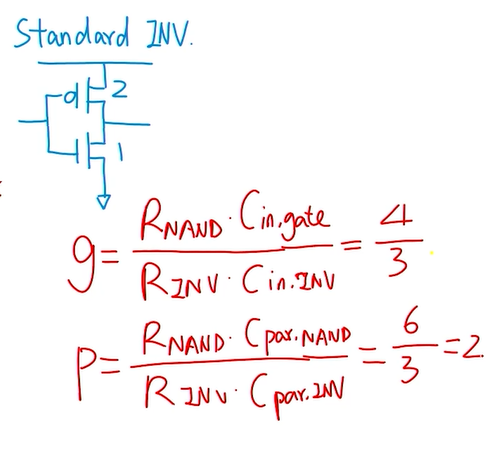 Standard INV.
2
1
g = R_NAND · C_in.gate / R_INV · C_in.INV = 4 / 3
P = R_NAND · C_par.NAND / R_INV · C_par.INV = 6 / 3 = 2.